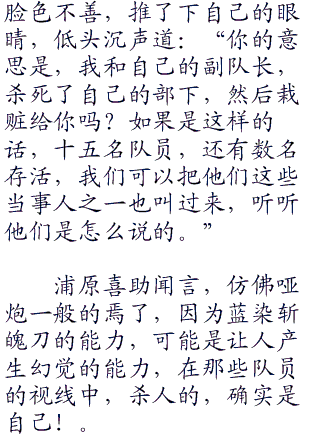 脸色不善，推了下自己的眼
睛，低头沉声道：“你的意
思是，我和自己的副队长，
杀死了自己的部下，然后栽
赃给你吗？如果是这样的
话，十五名队员，还有数名
存活，我们可以把他们这些
当事人之一也叫过来，听听
他们是怎么说的。”
浦原喜助闻言，仿佛哑
炮一般的焉了，因为蓝染斩
魄刀的能力，可能是让人产
生幻觉的能力，在那些队员
的视线中，杀人的，确实是
自己！。